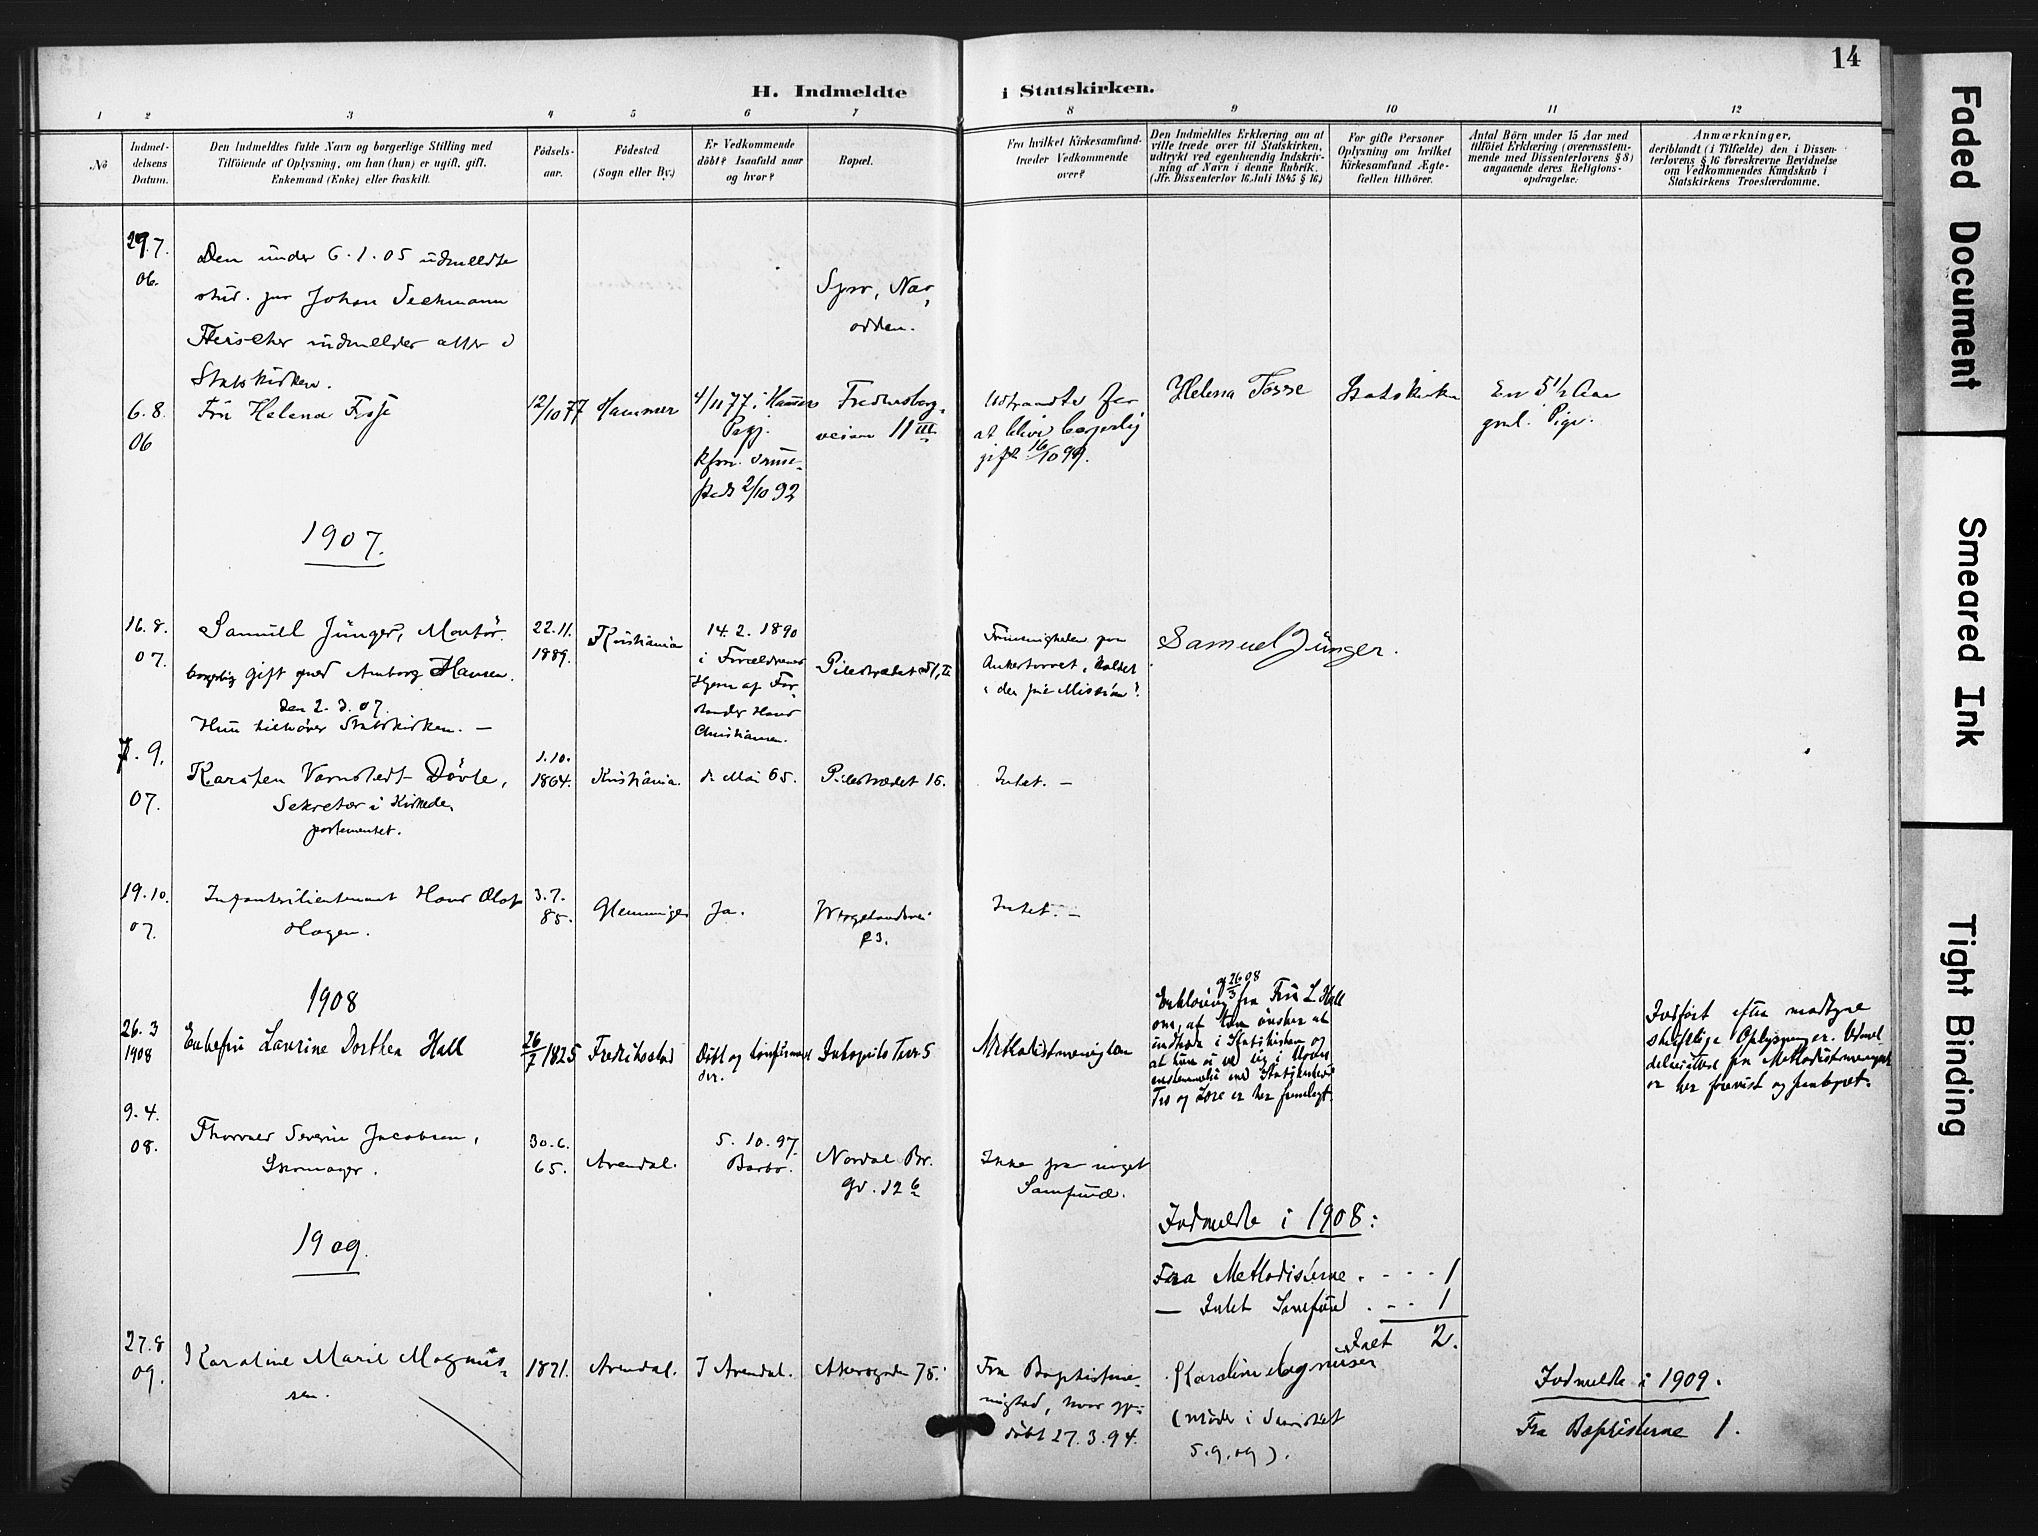 14
H. Indmeldte i Statskirken.
1 2 3 4 5 6 7 8 9 10 11 12
No
Indmel-
delsens
Datum.
Den Indmeldtes fulde Navn og borgerlige Stilling med
Tilföiende af Oplysning, om han (hun) er ugift, gift,
Enkemand (Enke) eller fraskilt.
Födsels-
aar.
Födested
(Sogn eller By.)
Er Vedkommende
döbt? Isaafald naar
og hvor?
Bopæl.
Fra hvilket Kirkesamfund
træder Vedkommende
over?
Den Indmeldtes Erklæring om at
ville træde over til Statskirken,
udtrykt ved egenhændig Indskriv-
ning af Navn i denne Rubrik.
(Jfr. Dissenterlov 16 Juli 1845 § 16.)
For gifte Personer
Oplysning om hvilket
Kirkesamfund Ægte-
fællen tilhörer.
Antal Börn under 15 Aar med
tilföiet Erklæring (overensstem-
mende med Dissenterlovens § 8)
angaaende deres Religions-
opdragelse.
Anmærkninger,
deriblandt (i Tilfælde) den i Dissen-
terlovens § 16 foreskrevne Bevidnelse
om Vedkommendes Kundskab i
Statskirkens Troeslærdomme.
29.7.
06.
Den under 6.1.05 udmeldte
stud. jur Johan
indmeldes atter i
Statskirken.
odden.
6.8.
06
Fru Helena
12/10 77
Hammer
4/11 77 i
2/10 92
veien 11 III
at blive borgerlig
gift 16/10 99.
Helena
Statskirken
En 5 1/2 Aar
gml. Pige.
1907.
16.8.
07.
Samuel Jünger, Montör.
borgerlig gift med Hansen.
den 2.3.07.
Hun tilhörer Statskirken. —
22.11.
1889.
Kristiania
14.2.1890
i Forældrenes
Hjem af For-
stander Hans
Christiansen.
Pilestrædet
Ankertorvet, kaldet
"den frie Mission".
Samuel Jünger.
7.9.
07.
Karsten Varnstedt
Sekretær i Kirkede-
partementet.
1.10.
1864.
Kristiania.
Mai 65.
Pilestrædet 16.
Intet. —
19.10.
07.
Infanterilieutenant Hans Olaf
Hagen.
3.7.
85.
Glemminge
Ja.
Intet. —
1908
26.3
1908
Enkefru Laurine Dorthea Hall
26/7 1825
Fredriksstad
Döbt og
Torv 5
Methodistmenigheden
Erklæring af 26/3 08 fra Fru L Hall
om, at hun önsker at
indtræde i Statskirken og
Tro og Lære er her fremlagt.
Indfört efter modtagne
skriftlige Oplysninger.
fra Methodistmenighed
er her forevist og
9.4.
08.
Severin Jacobsen,
Skomager.
30.6.
65.
Arendal.
5.10.97.
Barbo.
Nordal Br.
gd. 12 b
Ikke fra noget
Samfund.
Indmeldte i 1908:
Fra Methodisterne . - - - 1
— Intet Samfund . - - 1
Ialt 2.
1909.
27.8
09.
Karoline Marie Magnus-
sen.
1821.
Arendal.
I Arendal.
Akersgaden 75.
Fra Baptistme-
nighed, hvor gjen-
döbt 27.3.94.
Karoline Magnusen
(Möder i Sacristiet
5.9.09).
Indmeldte i 1909.
Fra Baptisterne 1.
Faded Document
Smeared Ink
Tight Binding